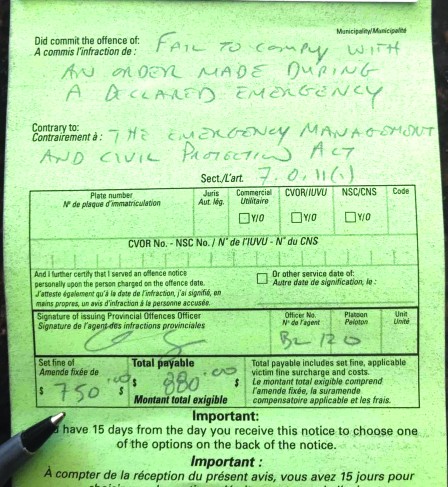 Municipality/Municipalité
Did commit the offence of: FAIL TO COMPLY WITH
A commis l'infraction de :
AN ORDER MADE DURING
A DECLARED EMERGENCY
Contrary to: THE EMERGENCY MANAGEMENT
Contrairement à :
AND CIVIL PROTECTION ACT
Sect./L'art. 7.0.11(1)
Plate number
N° de plaque d'immatriculation
Juris
Aut. lég.
Commercial
Utilitaire
Y/O
CVOR/IUVU
Y/O
NSC/CNS
Y/O
Code
CVOR No. - NSC No. / N° de l'IUVU - N° du CNS
And I further certify that I served an offence notice
personally upon the person charged on the offence date.
J'atteste également qu'à la date de l'infraction, j'ai signifié, en
mains propres, un avis d'infraction à la personne accusée.
Or other service date of:
Autre date de signification, le :
Signature of issuing Provincial Offences Officer
Signature de l'agent des infractions provinciales
Officer No.
N° de l'agent
Platoon
Peloton
Unit
Unité
Set fine of
Amende fixée de
$ 750.00 $
Total payable
$ 880.00 $
Montant total exigible
Total payable includes set fine, applicable
victim fine surcharge and costs.
Le montant total exigible comprend
l'amende fixée, la suramende
compensatoire applicable et les frais.
Important:
have 15 days from the day you receive this notice to choose one
of the options on the back of the notice.
Important :
À compter de la réception du présent avis, vous avez 15 jours pour